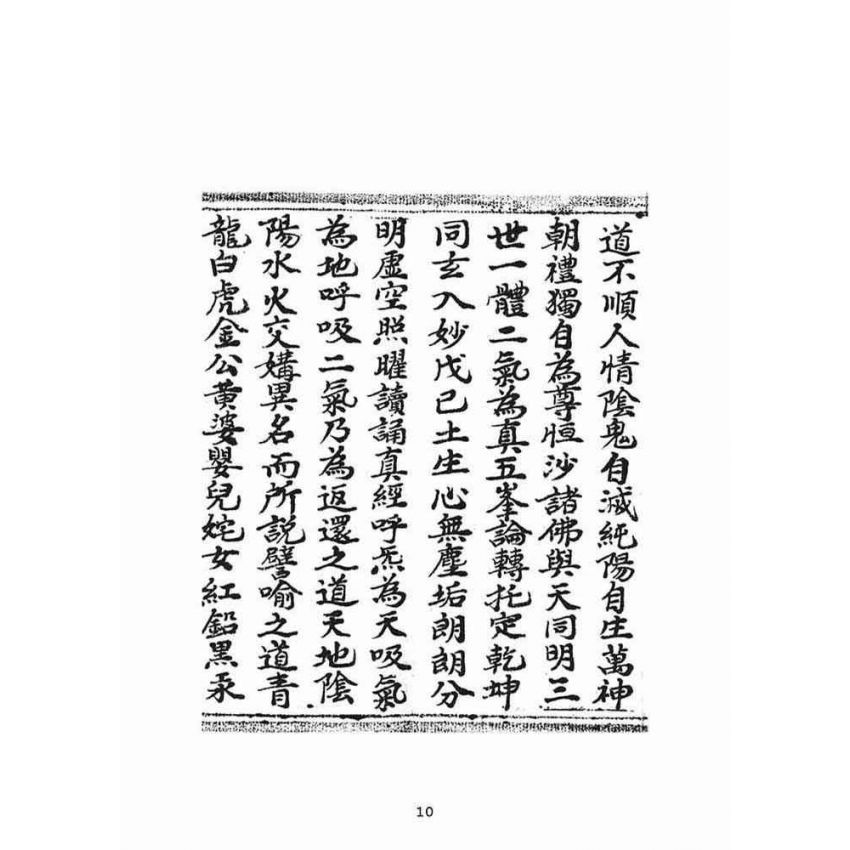 道不順人情陰鬼自滅純陽自生萬神
朝禮獨自為尊恒沙諸佛與天同明三
世一體二氣為真五峯論轉托定乾坤
同玄入妙戊己土生心無塵垢朗朗分
明虛空照曜讀誦真經呼炁為天吸氣
為地呼吸二氣乃為返還之道天地陰
陽水火交媾異名而所説譬喻之道青
龍白虎金公黃婆嬰兒姹女紅鉛黑汞
10